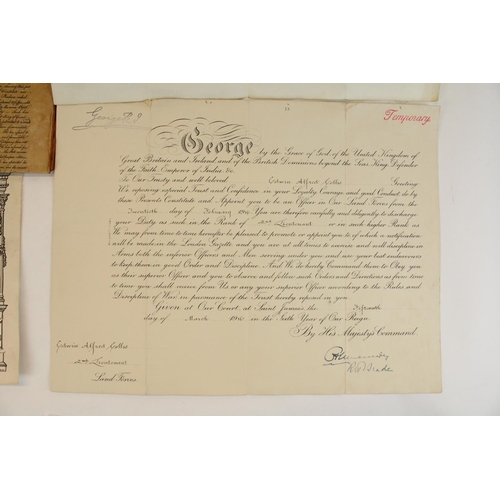 George R.I.
Temporary.
George by the Grace of God of the United Kingdom of
Great Britain and Ireland and of the British Dominions beyond the Seas King, Defender
of the Faith, Emperor of India, &c.
To Our Trusty and well beloved Edwin Alfred Greeting
We, reposing especial Trust and Confidence in your Loyalty, Courage, and good Conduct, do by
these Presents Constitute and Appoint you to be an Officer in Our Land Forces from the
day of February 1916. You are therefore carefully and diligently to discharge
your Duty as such in the Rank of 2nd Lieutenant or in such higher Rank as
We may from time to time hereafter be pleased to promote or appoint you to, of which a notification
will be made in the London Gazette, and you are at all times to exercise and well discipline in
Arms both the inferior Officers and Men serving under you and use your best endeavours
to keep them in good Order and Discipline. And We do hereby Command them to Obey you
as their superior Officer and you to observe and follow such Orders and Directions as from time
to time you shall receive from Us, or any your superior Officer, according to the Rules and
Discipline of War, in pursuance of the Trust hereby reposed in you.
Given at Our Court, at Saint James's, the Fifteenth
day of March 1916 in the Sixth Year of Our Reign
By His Majesty's Command.
Edwin Alfred
2nd Lieutenant
Land Forces
R H Brade